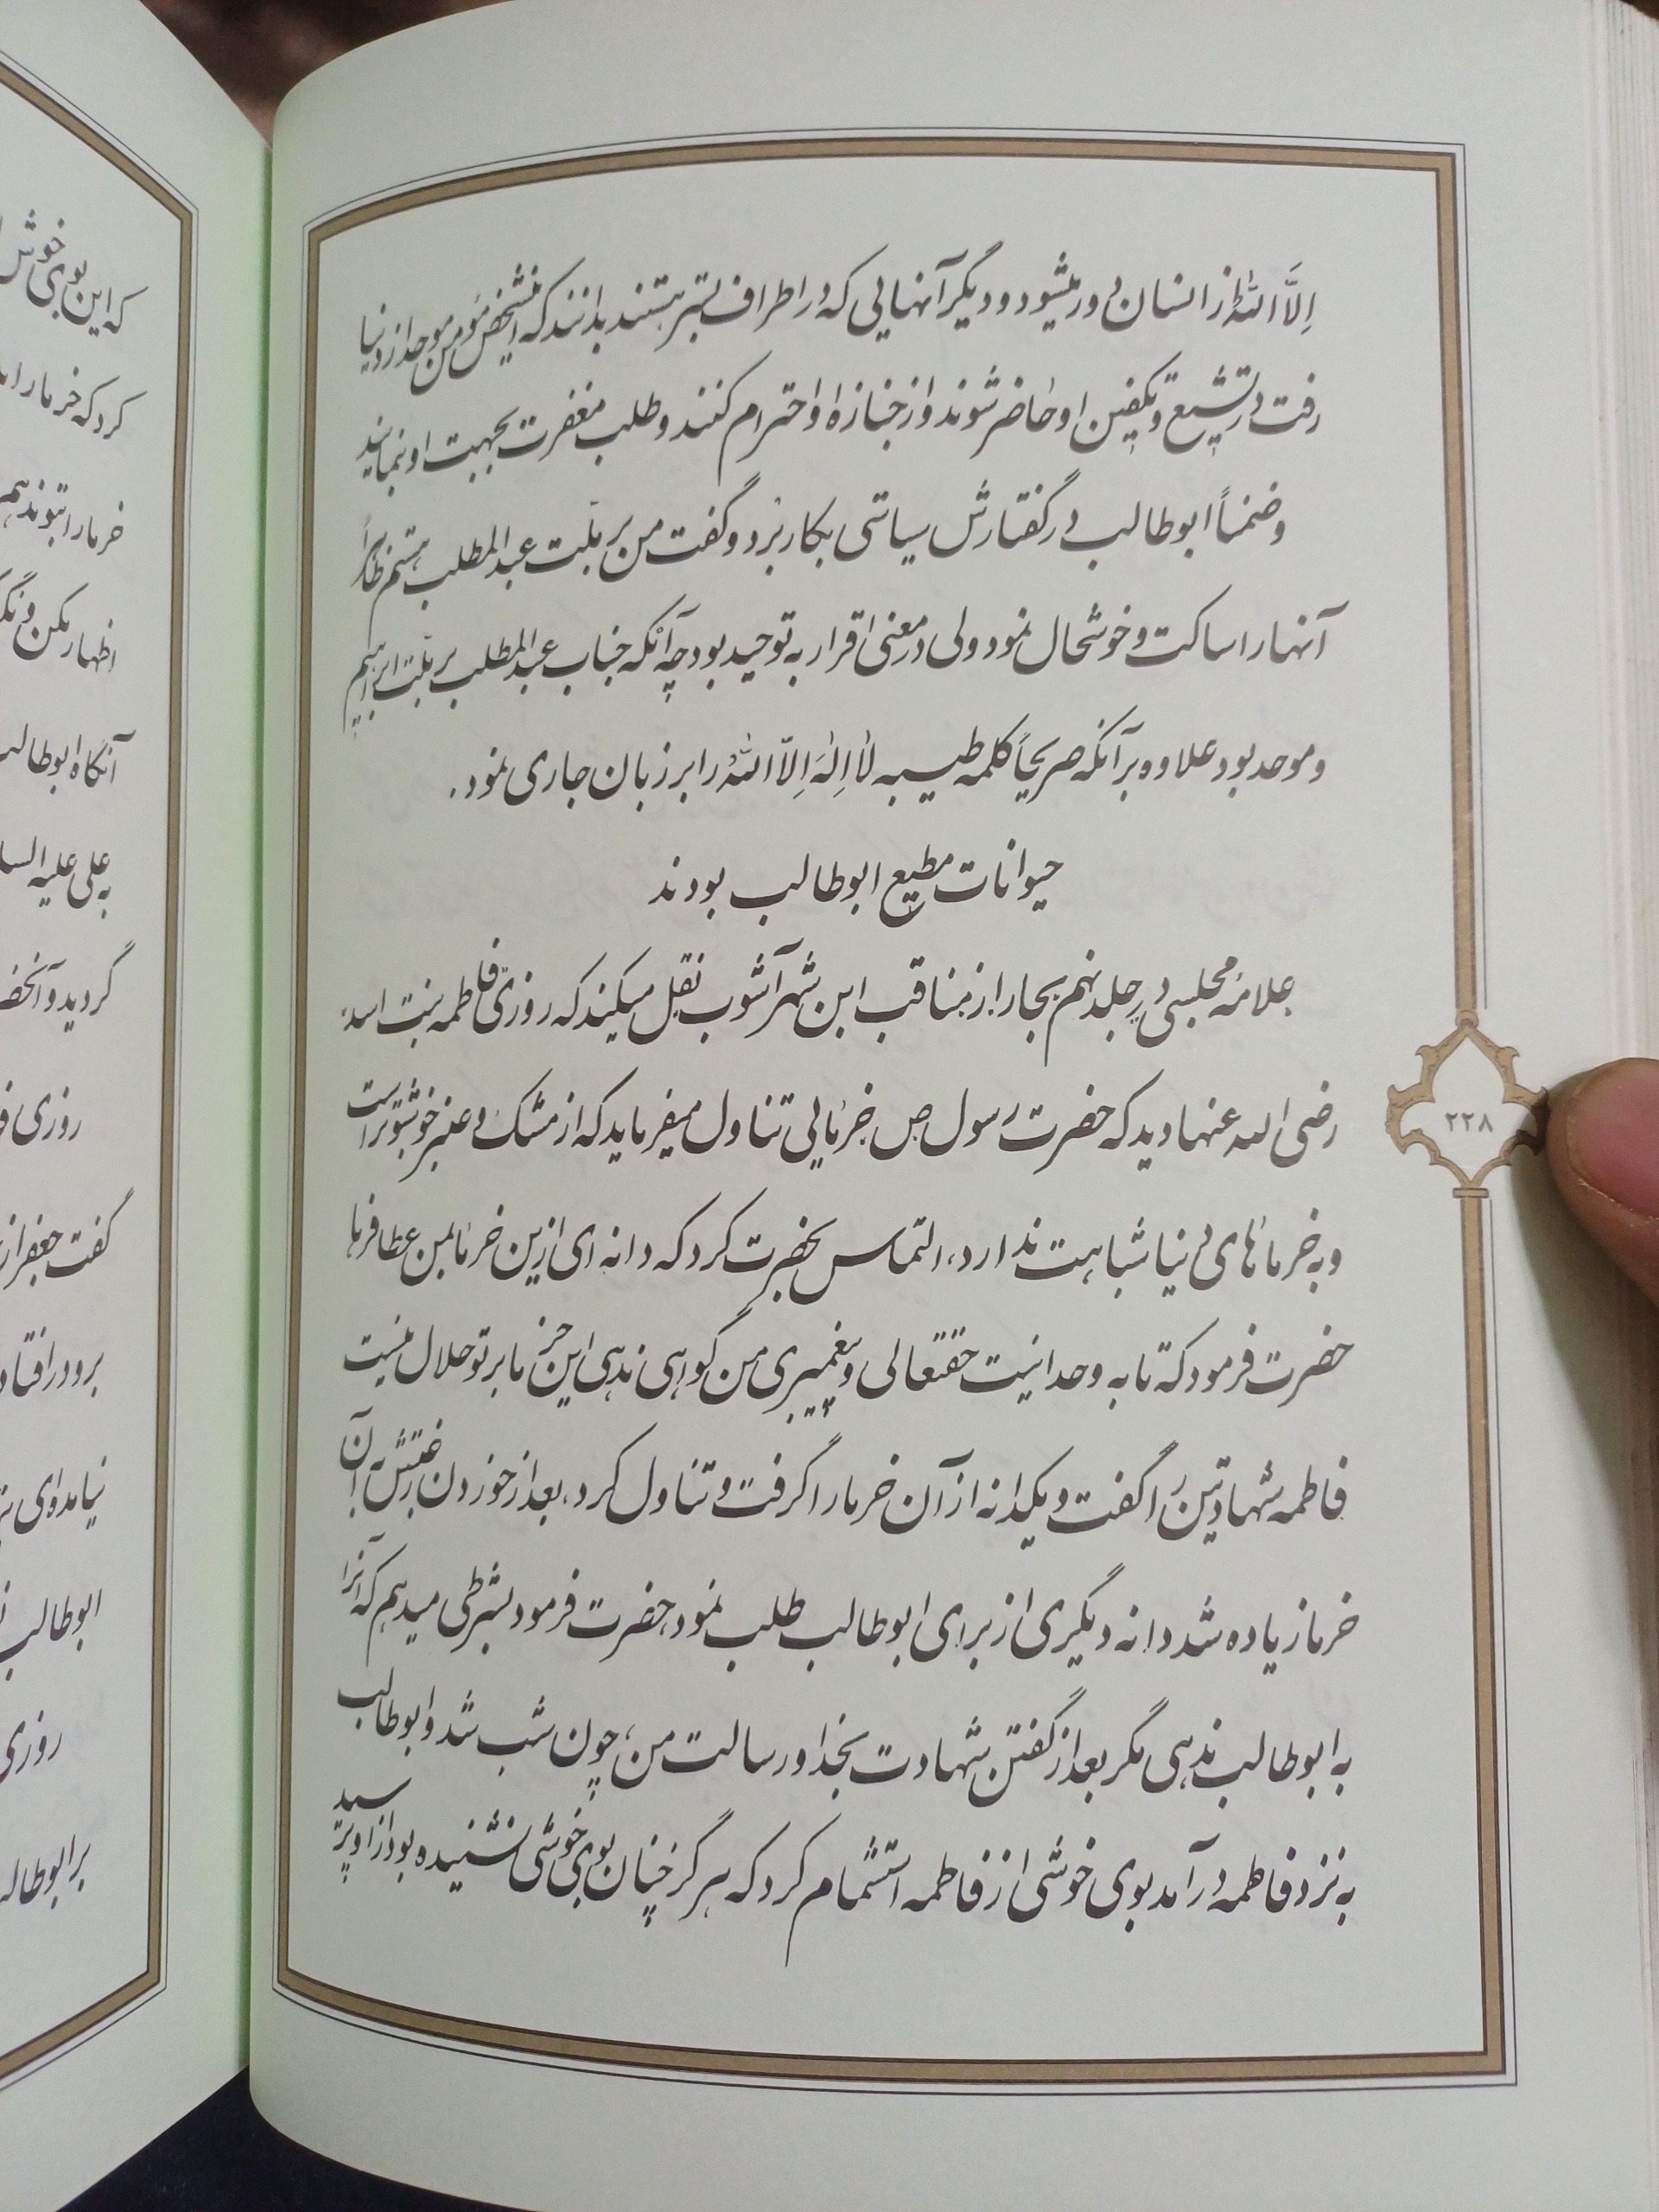 اِلاَّ اللهُ از انسان دور میشود و دیگر آنهایی که در اطراف بستر هستند بدانند که اینشخص مؤمن موحد از دنیا
رفت در تشییع و تکفین او حاضر شوند و از جنازه او احترام کنند و طلب مغفرت بجهت او نمایند
و ضمناً ابوطالب در گفتارش سیاستی بکار برد و گفت من بر ملّت عبدالمطلب هستم ظاهراً
آنها را ساکت و خوشحال نمود ولی در معنی اقرار به توحید بود چه آنکه جناب عبدالمطلب بر ملّت ابراهیم
و موحد بود علاوه بر آنکه صریحاً کلمه طیبه لااِلهَ اِلاّ اللهُ را بر زبان جاری نمود.
حیوانات مطیع ابوطالب بودند
علامه مجلسی در جلد نهم بحار از مناقب ابن شهرآشوب نقل میکند که روزی فاطمه بنت اسد
رضی الله عنها دید که حضرت رسول ص خرمایی تناول میفرماید که از مشک و عنبر خوشبوتر است
و به خرماهای دنیا شباهت ندارد، التماس بحضرت کرد که دانه ای ازین خرما بمن عطا فرما
حضرت فرمود که تا به وحدانیت حقتعالی و پیغمبری من گواهی ندهی این خرما بر تو حلال نیست
فاطمه شهادتین را گفت و یکدانه از آن خرما را گرفت و تناول کرد، بعد از خوردن رغبتش بآن
خرما زیاده شد دانه دیگری از برای ابوطالب طلب نمود حضرت فرمود بشرطی میدهم که آنرا
به ابوطالب ندهی مگر بعد از گفتن شهادت بخدا و رسالت من؛ چون شب شد و ابوطالب
به نزد فاطمه در آمد بوی خوشی از فاطمه استشمام کرد که هرگز چنان بوی خوشی نشنیده بود از او پرسید
۲۲۸
که این بوی خوش
کرد که خرما را
خرما را بتو ندهم
اظهار مکن و
آنگاه ابوطالب
به علی علیه السلا
گردید و آنحض
روزی
گفت جعفر از
برو در افتاد
نیامد و ای
ابوطالب
روزی
بر ابوطالب